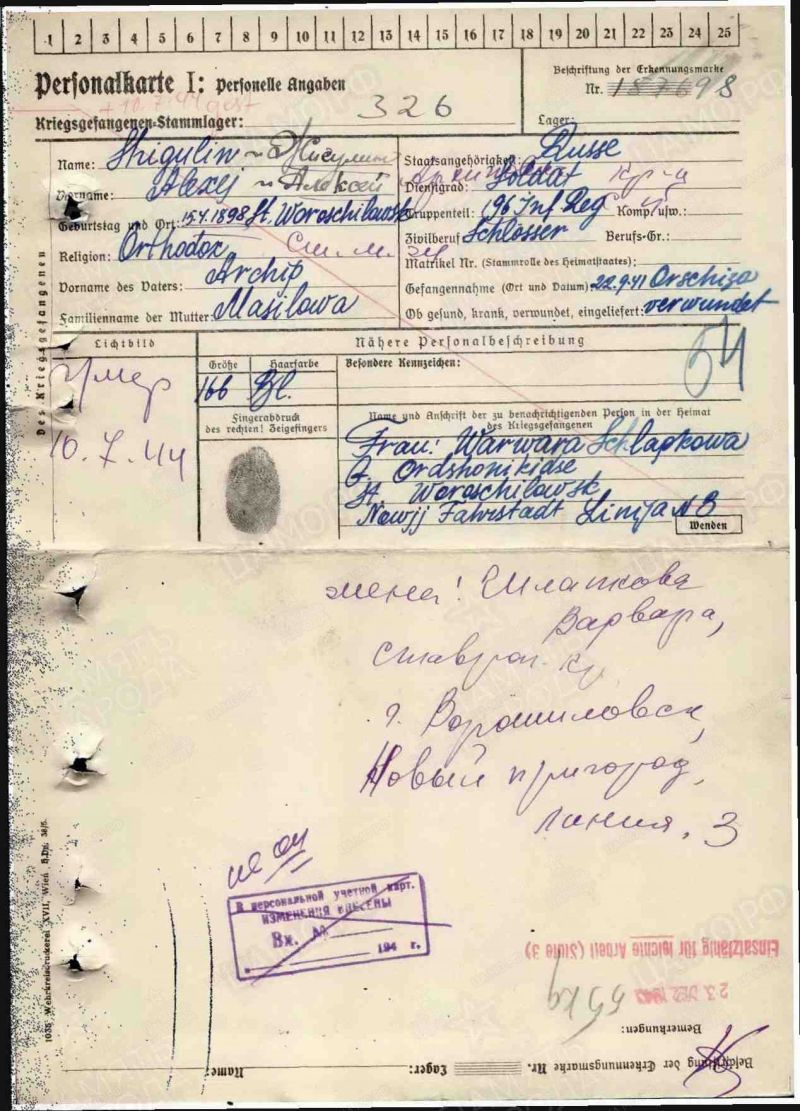 1 2 3 4 5 6 7 8 9 10 11 12 13 14 15 16 17 18 19 20 21 22 23 24 25
Personalkarte I: Personelle Angaben
Beschriftung der Erkennungsmarke
Nr. 187698
+ 10.7.44 gest
Kriegsgefangenen-Stammlager: 326
Lager:
Name: Shigulin Жигулин
Vorname: Alexej Алексей
Geburtstag und Ort: 15.4.1898 St. Woroschilowsk
Religion: Orthodox
Vorname des Vaters: Archip
Familienname der Mutter: Masilowa
Staatsangehörigkeit: Russe
Dienstgrad: Soldat кр-ц
Truppenteil: 196 Inf Reg Komp. usw.:
Zivilberuf: Schlosser Berufs-Gr.:
Matrikel Nr. (Stammrolle des Heimatstaates):
Gefangennahme (Ort und Datum): 22.9.41 Orschiza
Ob gesund, krank, verwundet, eingeliefert: verwundet
Des Kriegsgefangenen
Lichtbild
умер
10.7.44
Nähere Personalbeschreibung
Größe Haarfarbe Besondere Kennzeichen:
166 Bl.
54
Fingerabdruck
des rechten! Zeigefingers
Name und Anschrift der zu benachrichtigenden Person in der Heimat
des Kriegsgefangenen
Frau: Warwara Schlapkowa
G. Ordshonikidse
St. Woroschilowsk
Nowjj Fahrstadt Linija N 3
Wenden
жена: Шлапкова
Варвара,
Ставроп. кр.
г. Ворошиловск,
Новый пригород,
линия, 3
В персональной учетной карт.
ИЗМЕНЕНИЯ ВНЕСЕНЫ
Вх. №
194 г.
1035 Wehrkreisdruckerei XVII, Wien
Einsatzfähig für leichte Arbeit (Stufe 3)
23. DEZ. 1942
55 kg
Bemerkungen:
Beschriftung der Erkennungsmarke Nr.
Lager:
Name: